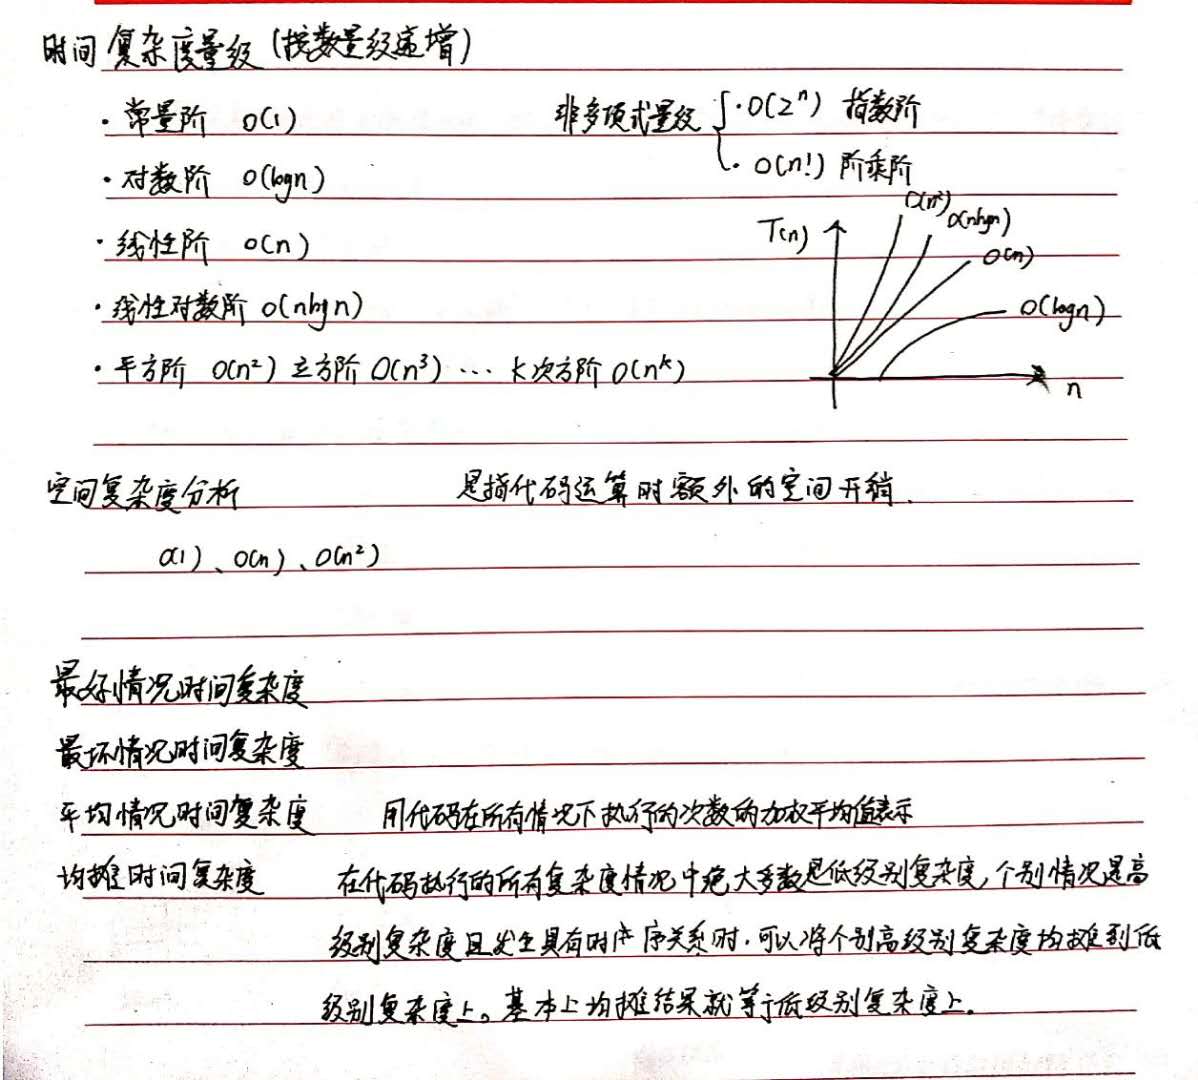 时间复杂度量级(按数量级递增)
· 常量阶 O(1)
· 对数阶 O(logn)
· 线性阶 O(n)
· 线性对数阶 O(nlogn)
· 平方阶 O(n²) 立方阶 O(n³) … k次方阶 O(nᵏ)
非多项式量级 { · O(2ⁿ) 指数阶
· O(n!) 阶乘阶
T(n)
O(n²)
O(nlogn)
O(n)
O(logn)
n
空间复杂度分析 是指代码运算时额外的空间开销.
O(1)、O(n)、O(n²)
最好情况时间复杂度
最坏情况时间复杂度
平均情况时间复杂度 用代码在所有情况下执行的次数的加权平均值表示
均摊时间复杂度 在代码执行的所有复杂度情况中绝大多数是低级别复杂度,个别情况是高
级别复杂度且发生具有时序关系时.可以将个别高级别复杂度均摊到低
级别复杂度上。基本上均摊结果就等于低级别复杂度上.